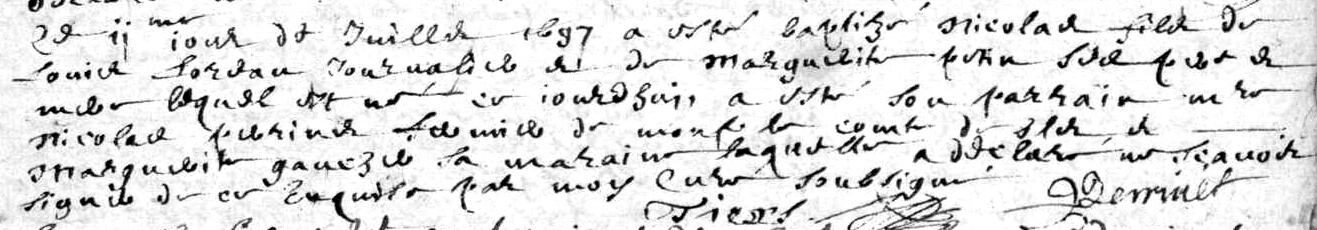 Le ij me jour de Juillet 1697 a esté baptizé Nicolas fils de
Louis Loreau Journalier et de Marguerite potin ses pere et
mere lequel est né ce jourdhuy a esté son parrain mre
Nicolas fermier de monsr le comte de et
Marguerite sa maraine laquelle a déclaré ne scavoir
signer de ce Enquise par moy Curé soubsigné
Tiers